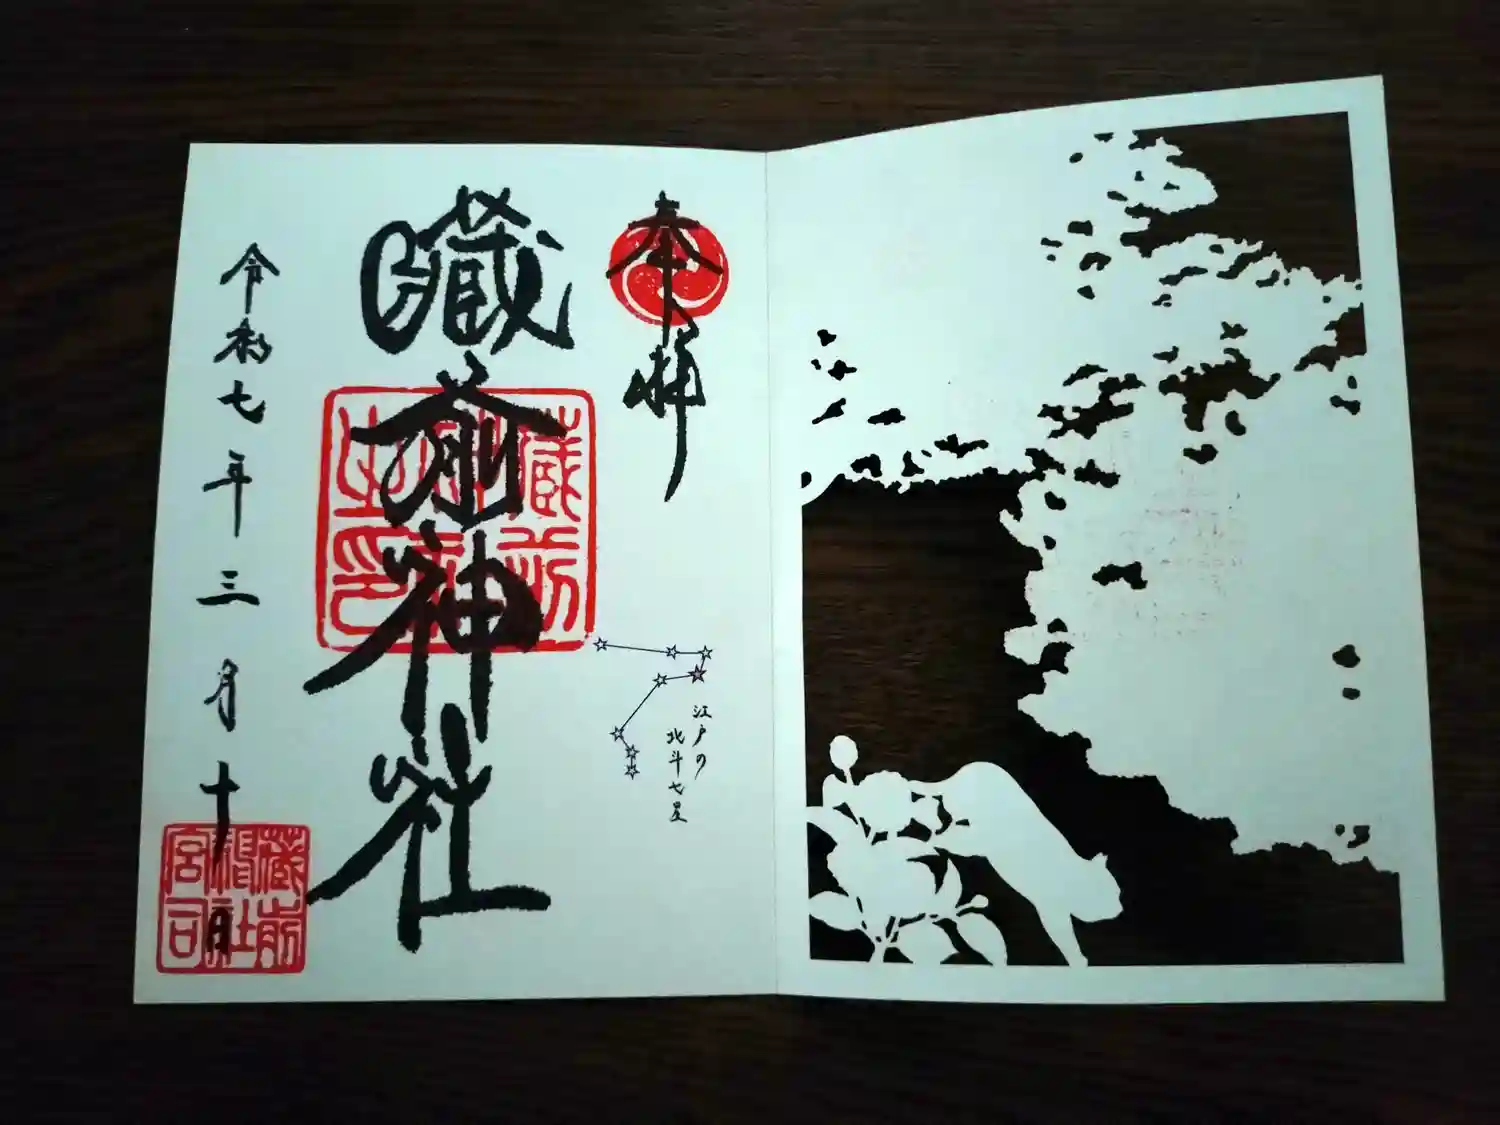 奉拝
藏前神社
蔵前
神社
之印
江戸の
北斗七星
令和七年三月十日
蔵前
神社
宮司